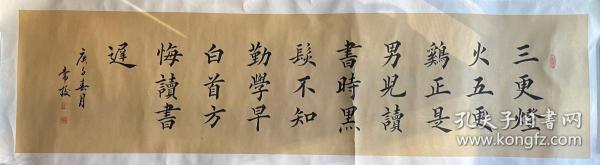 三更燈
火五更
鷄正是
男兒讀
書時黑
髮不知
勤學早
白首方
悔讀書
遲
庚子春月
孔夫子旧书网